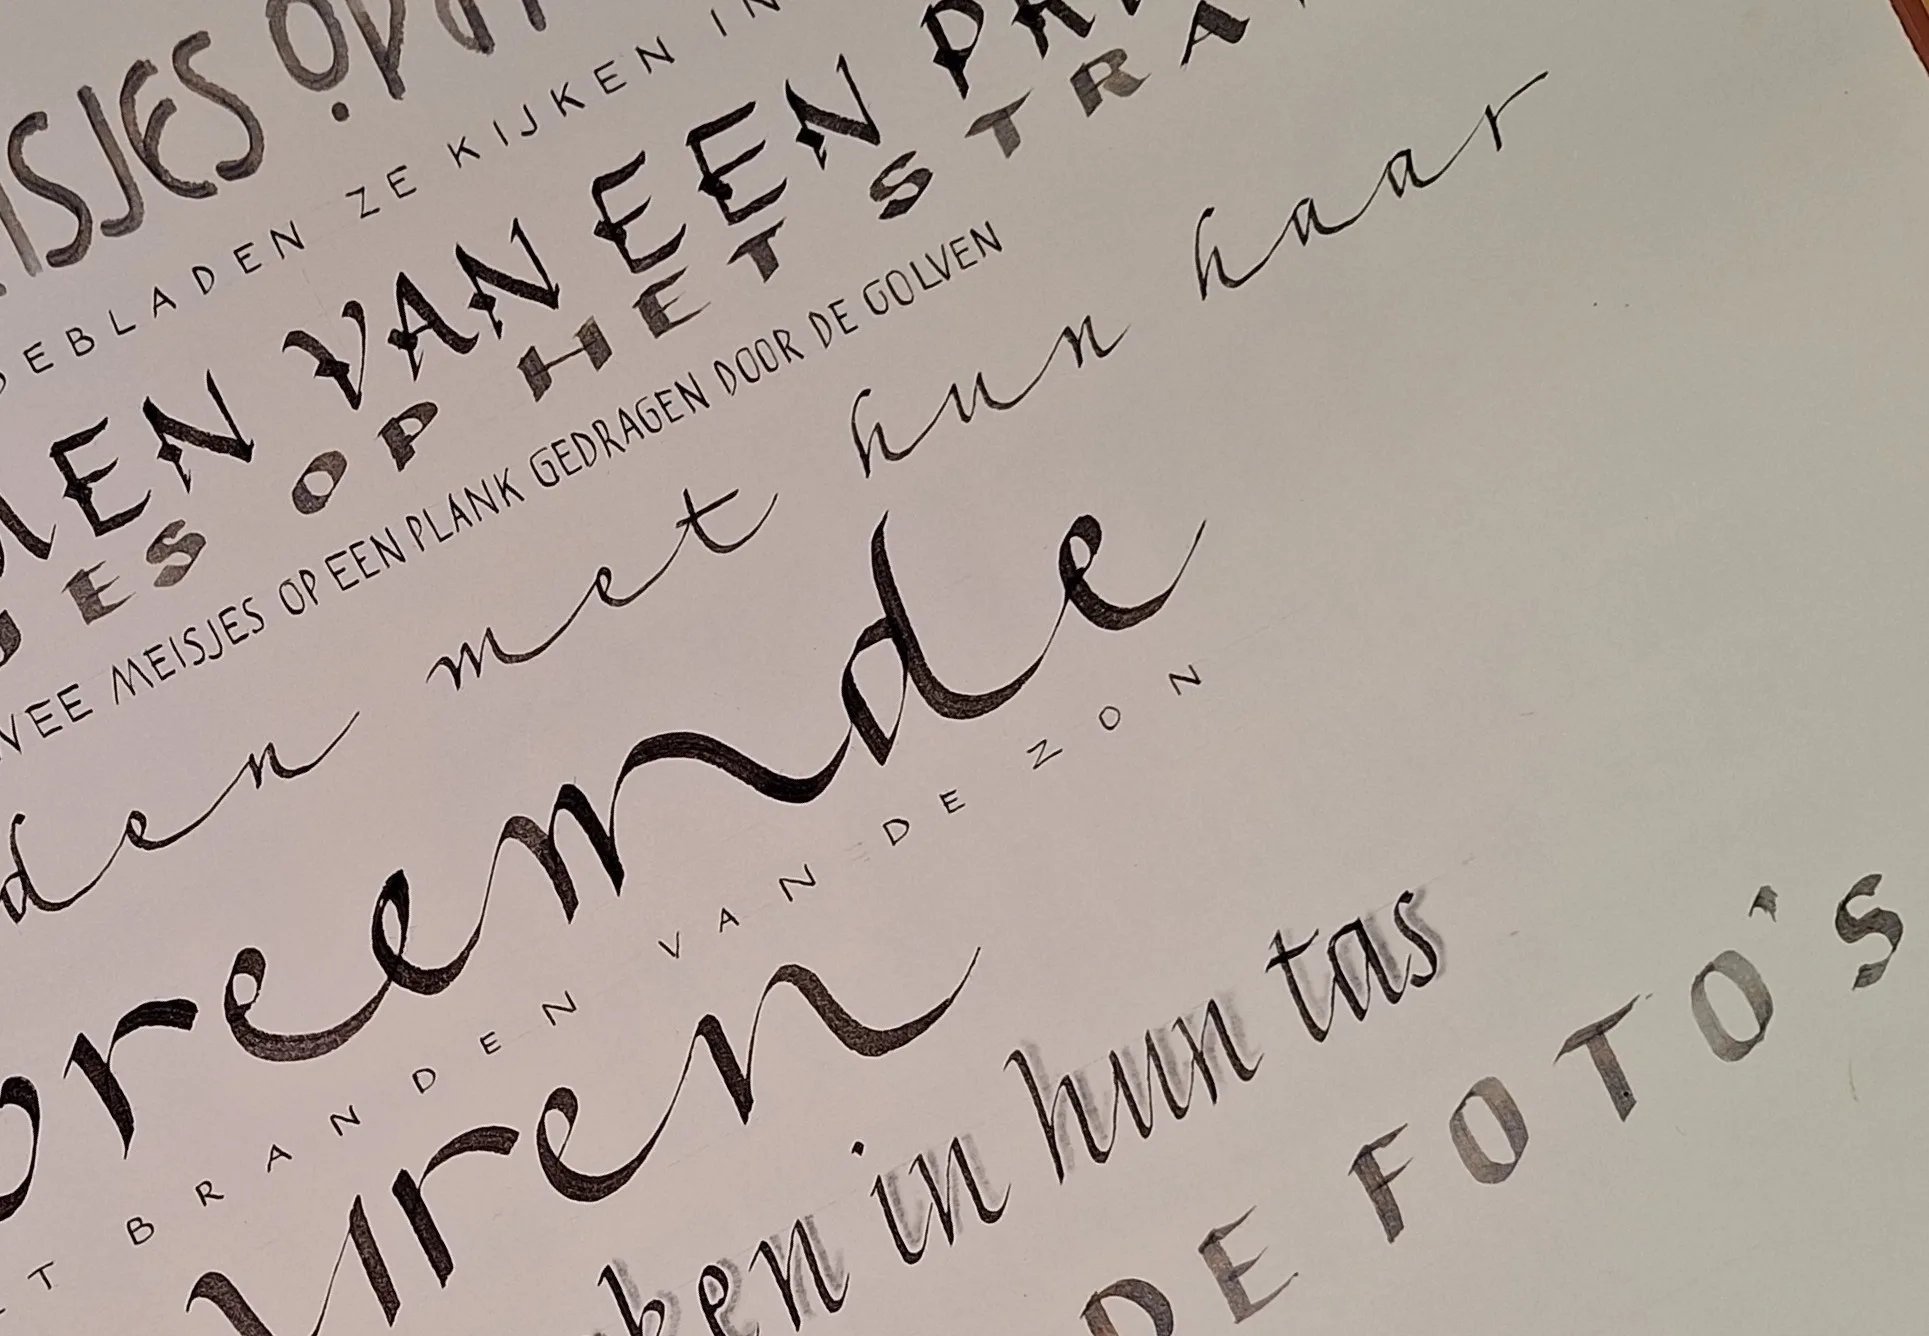 ISJES OP
EBLADEN ZE KIJKEN IN
EN VAN EEN
JES OP HET STRA
WEE MEISJES OP EEN PLANK GEDRAGEN DOOR DE GOLVEN
den met hun haar
vreemde
T BRANDEN VAN DE ZON
uren
ken in hun tas
DE FOTO'S